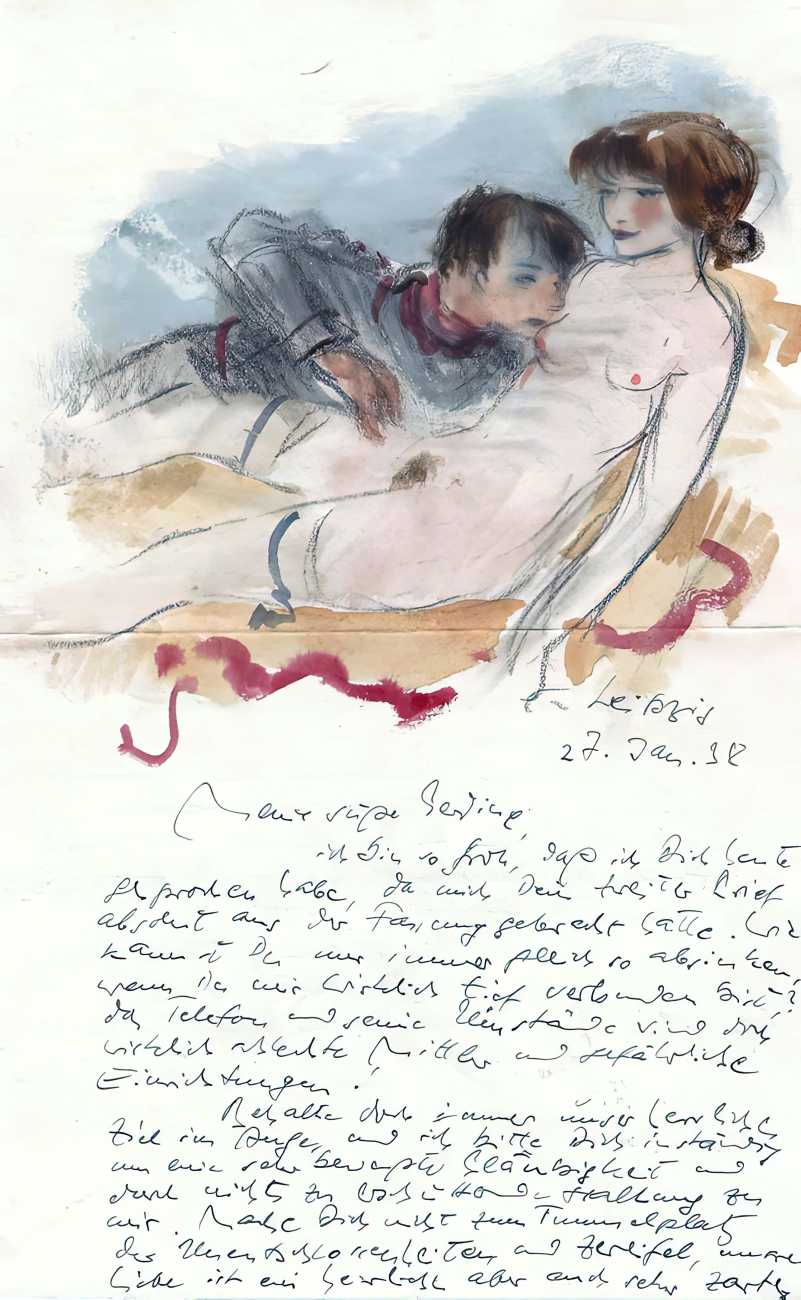 Leipzig
27. Jan. 38
Meine süße
ich bin so froh, daß ich Dich heute
gesprochen habe, da mich Dein zweiter Brief
absolut aus der Fassung gebracht hatte. Wie
kannst Du nur immer gleich so absinken,
wenn Du mir wirklich tief verbunden bist?
das Telefon und seine Umstände sind doch
wirklich schlechte Mittler und gefährliche
Einrichtungen!
Behalte doch immer unser herrliches
Ziel im Auge, und ich bitte Dich inständig
um eine sehr bewußte Gläubigkeit und
durch nichts zu erschütternde Haltung zu
mir. Mache Dich nicht zum Tummelplatz
der Unentschlossenheiten und Zweifel, unsere
Liebe ist ein herrliches aber auch sehr zartes